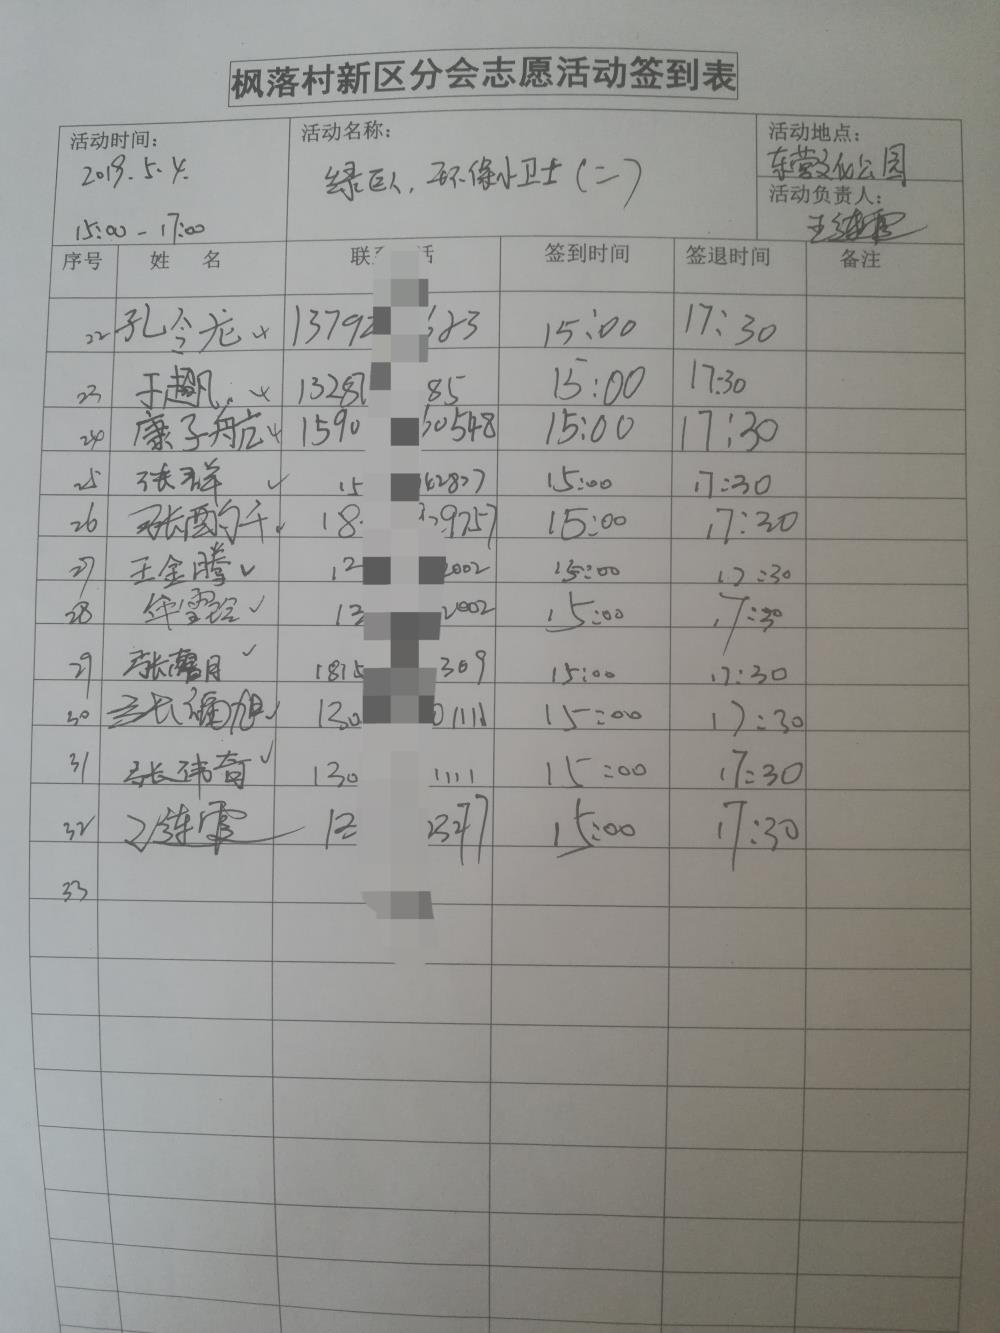 枫落村新区分会志愿活动签到表
活动时间： 活动名称： 活动地点：
2019.5.4. 绿巨人，环保小卫士（二） 东营文化公园
15:00 - 17:00 活动负责人：
序号 姓 名 联 话 签到时间 签退时间 备注
22 孔令龙 13792 683 15:00 17:30
23 于超凡 1328 85 15:00 17:30
24 康子舟 1590 50548 15:00 17:30
25 张 祥 15 42827 15:00 17:30
26 张 千 18 29757 15:00 17:30
27 王金腾 13 2002 15:00 17:30
28 13 2002 15:00 17:30
29 张 月 1815 309 15:00 17:30
30 张 旭 130 01111 15:00 17:30
31 张玮奇 130 1111 15:00 17:30
32 13 2377 15:00 17:30
33